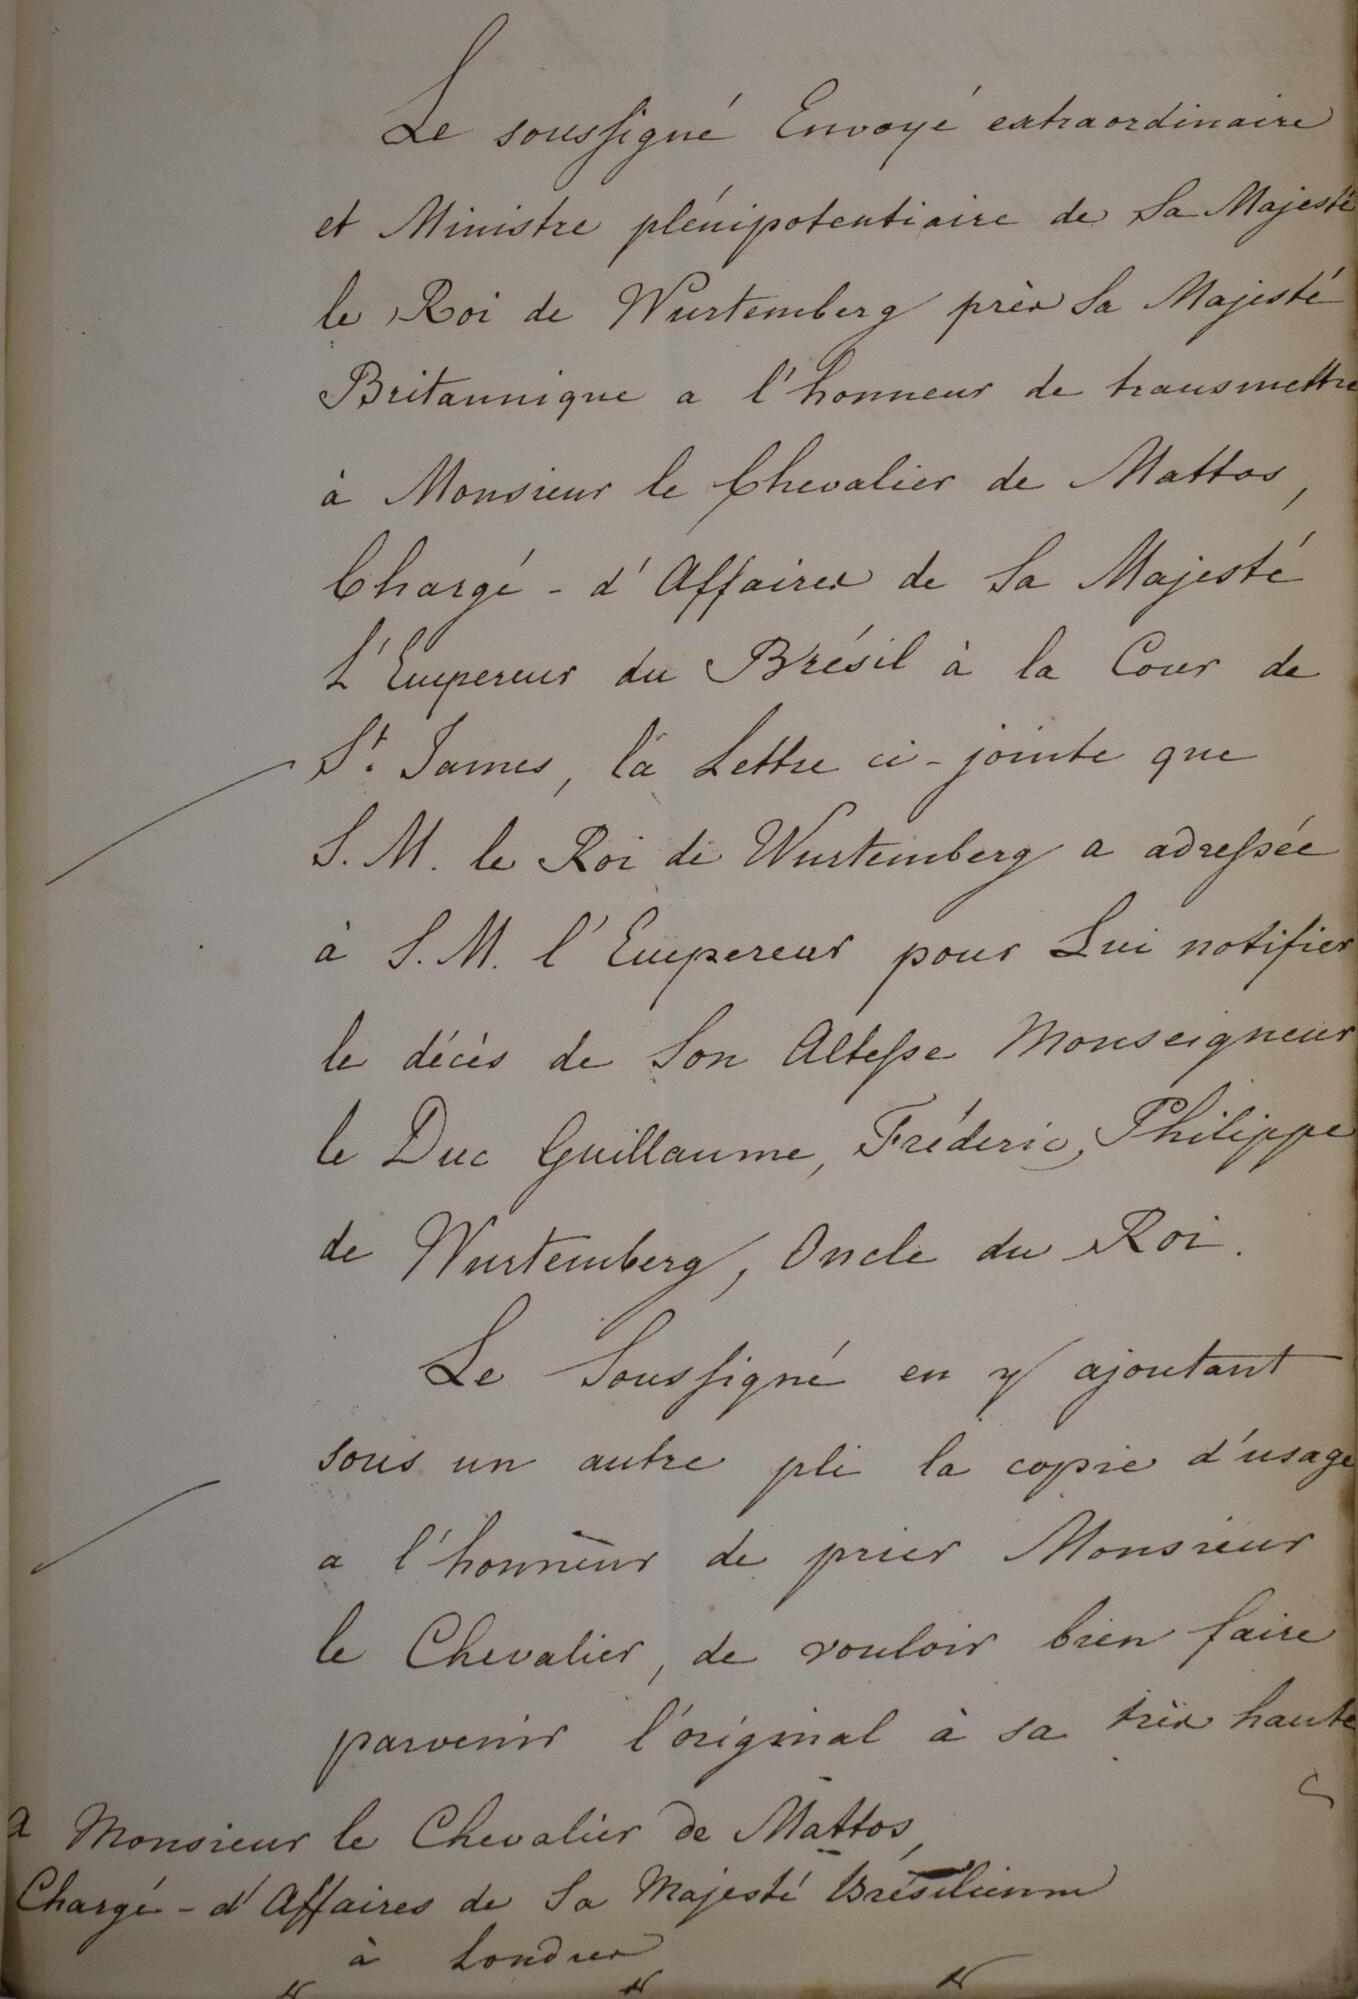 Le soussigné Envoyé extraordinaire
et Ministre plénipotentiaire de Sa Majesté
le Roi de Wurtemberg près Sa Majesté
Britannique a l'honneur de transmettre
à Monsieur le Chevalier de Mattos,
Chargé-d'Affaires de Sa Majesté
L'Empereur du Brésil à la Cour de
St. James, la Lettre ci-jointe que
S. M. le Roi de Wurtemberg a adressée
à S. M. l'Empereur pour Lui notifier
le décès de Son Altesse Monseigneur
le Duc Guillaume, Fréderic, Philippe
de Wurtemberg, Oncle du Roi.
Le Soussigné en y ajoutant
sous un autre pli la copie d'usage
a l'honneur de prier Monsieur
le Chevalier, de vouloir bien faire
parvenir l'original à sa très haute
à Monsieur le Chevalier de Mattos,
Chargé-d'Affaires de Sa Majesté Brésilienne
à Londres